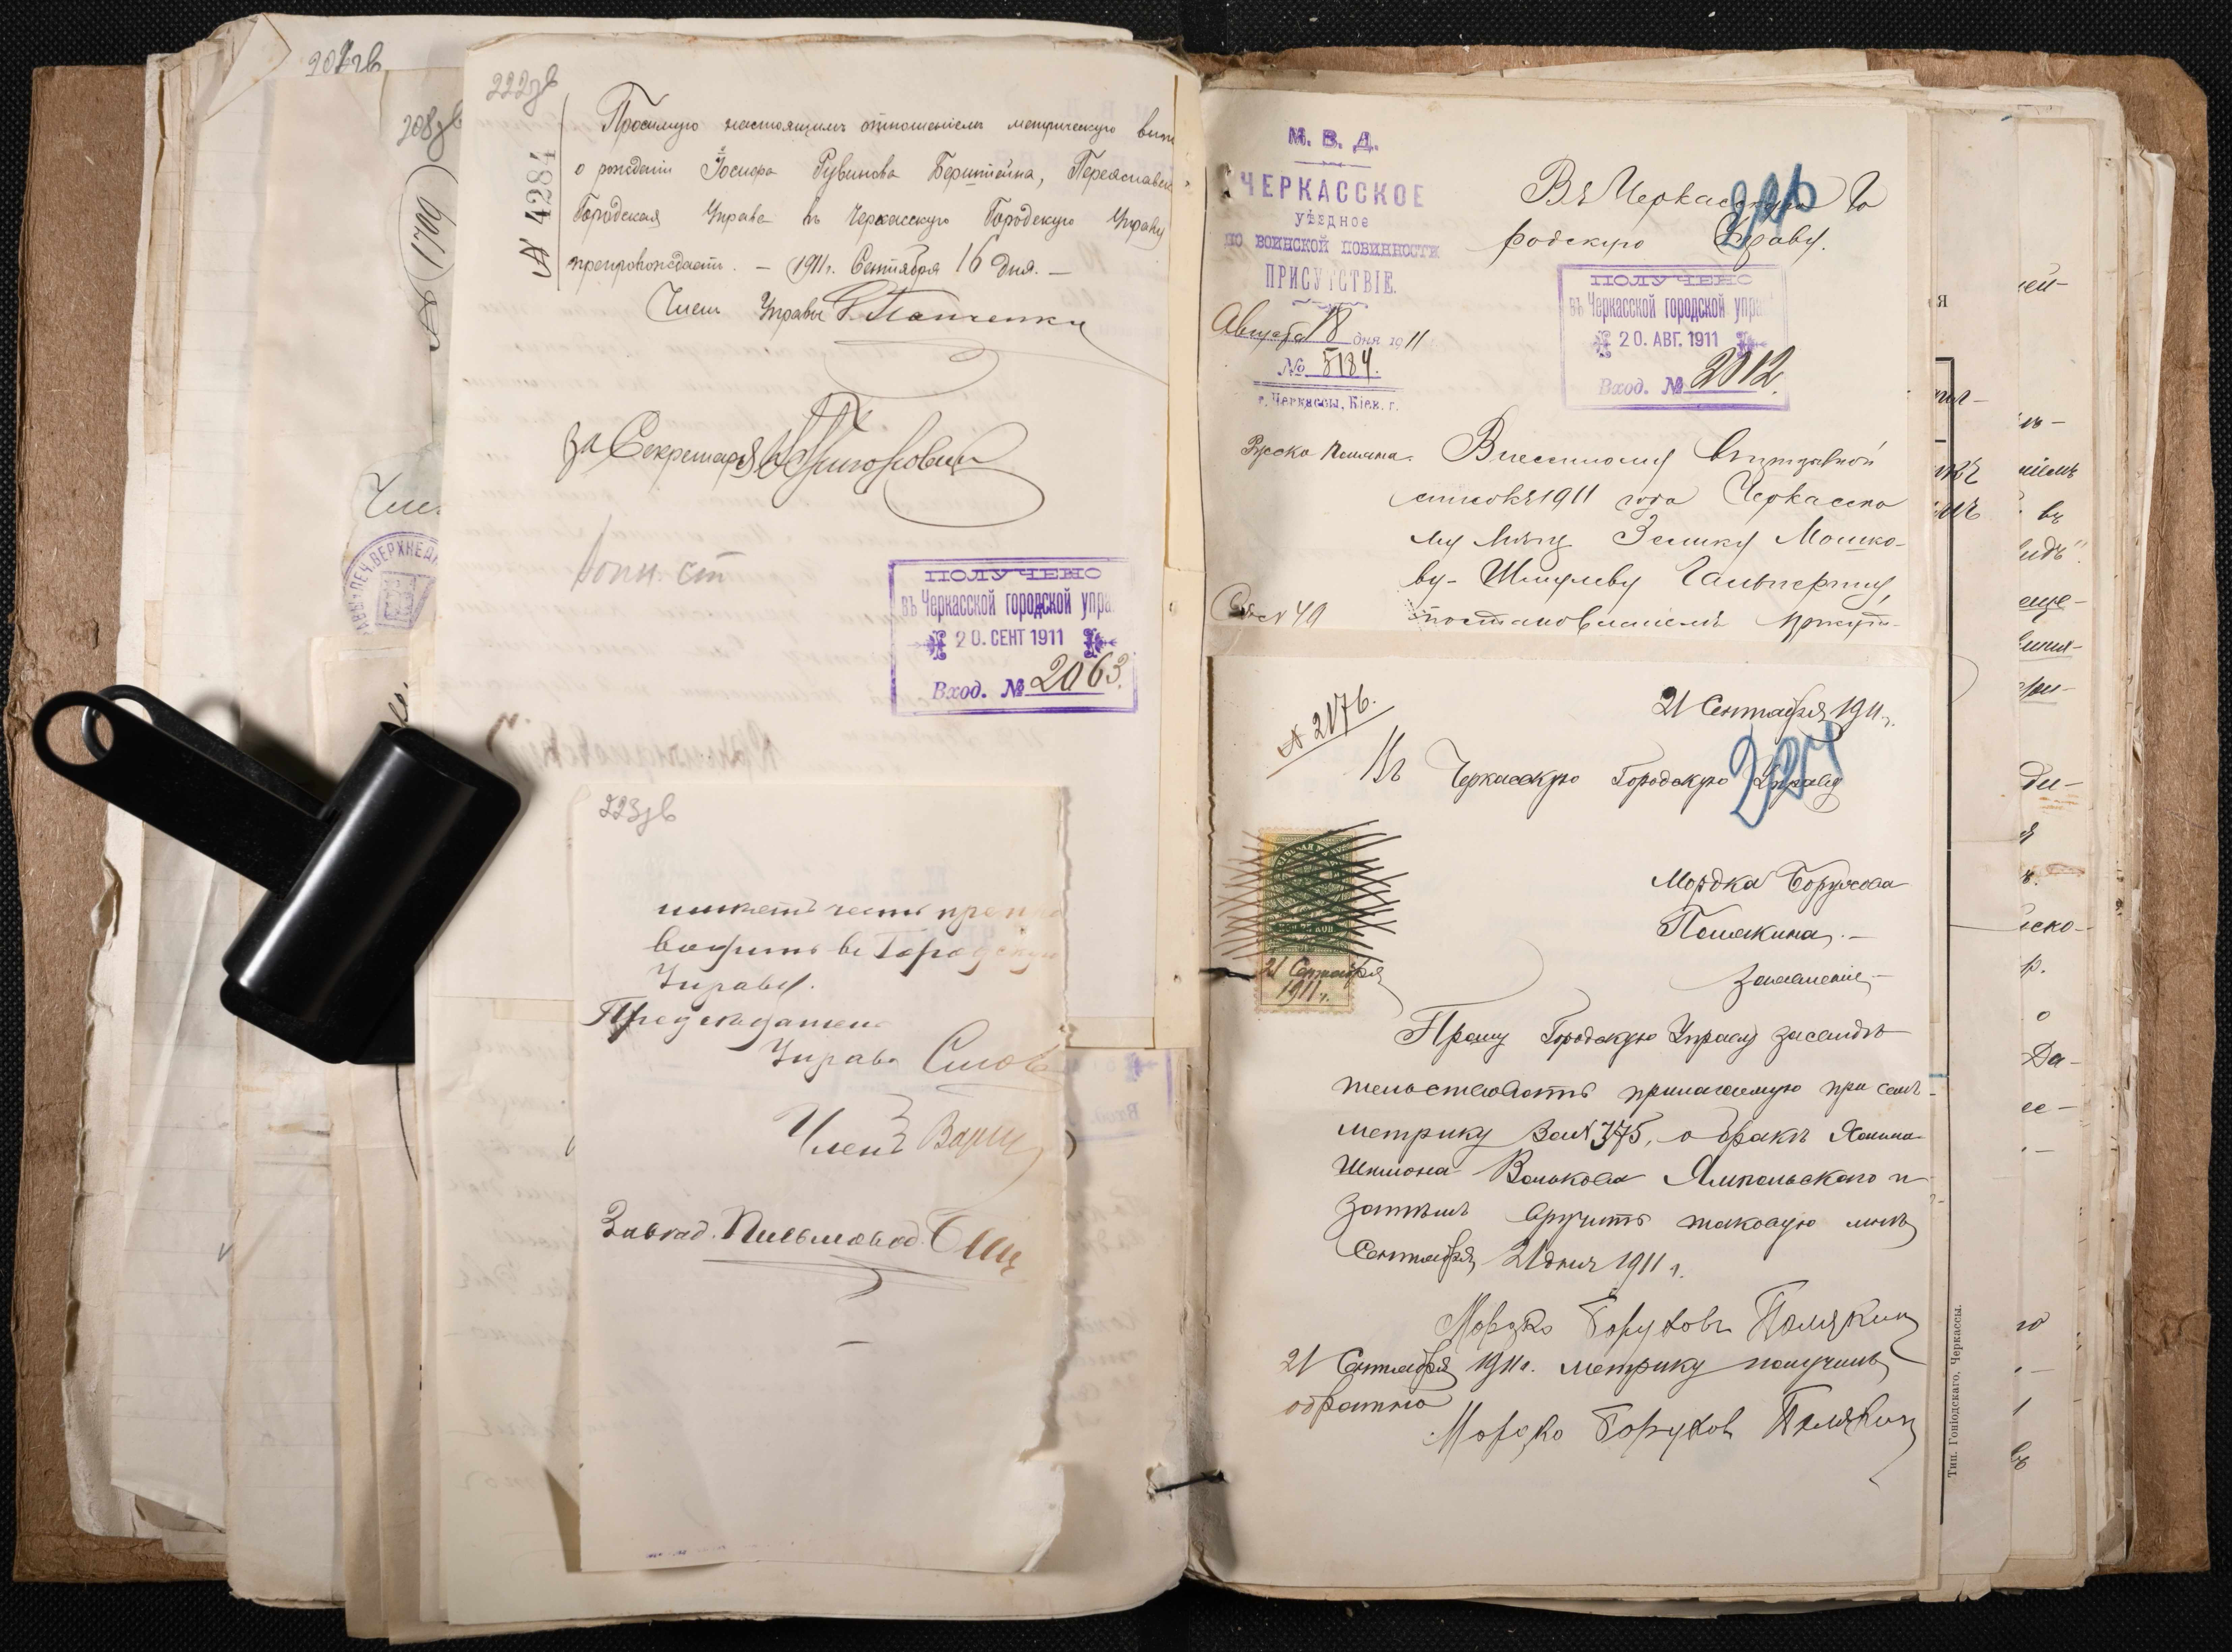 207зв
208зв
№ 1709
222зв
№ 4284
Просимую настоящимъ отношеніемъ метрическую вып
о рожденіи Іосифа Рувинова Берштейна, Переяславск
Городская Управа въ Черкасскую Городскую Управу
препровождаетъ. – 1911 г. Сентября 16 дня. –
Членъ Управы
За Секретаря
ПОЛУЧЕНО
въ Черкасской городской упра
20. СЕНТ 1911
Вход. № 2063.
223зв
имѣетъ честь препро
водить въ Городскую
Управу.
Предсѣдатель
Управы
Членъ
Завѣд. Письмовод.
М. В. Д.
ЧЕРКАССКОЕ
уѣздное
по воинской повинности
ПРИСУТСТВІЕ.
Августа 18 дня 1911
№ 5184.
г. Черкассы, Кіев. г.
226
Въ Черкасскую Го
родскую Управу.
ПОЛУЧЕНО
въ Черкасской городской упра
20. АВГ. 1911
Вход. № 2012.
Внесенному въ призывной
списокъ 1911 года Черкасско
му мѣщ. Зелику Мошко-
ву-Шмулеву Гальперину,
постановленіемъ присут-
№ 2176.
21 Сентября 1911 г.
227
Въ Черкасскую Городскую Управу
Мордка Борухова
Полякина. –
Заявленіе –
21 Сентября
1911 г.
Прошу Городскую Управу засвидѣ-
тельствовать прилагаемую при семъ
метрику за № 375, о бракѣ Хаима
Шимона Волькова Ямпольскаго и
затѣмъ вручить таковую мнѣ
Сентября 21 дня 1911 г.
Мордко Боруховъ Полякинъ
21 Сентября 1911 г. метрику получилъ
обратно
Мордко Борухов Полякинъ
Тип. Гоніодскаго, Черкассы.